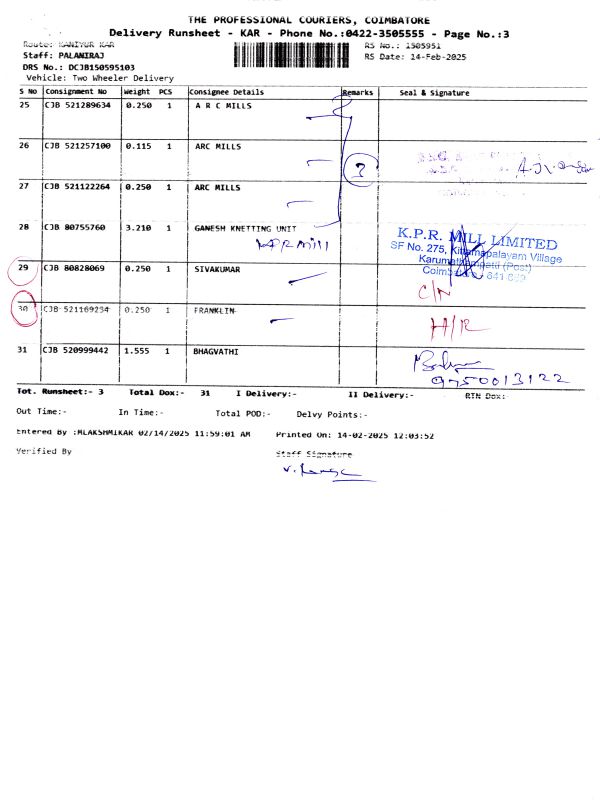 THE PROFESSIONAL COURIERS, COIMBATORE
Delivery Runsheet - KAR - Phone No.:0422-3505555 - Page No.:3
Route: KANIYUR KAR RS No.: 1505951
Staff: PALANIRAJ RS Date: 14-Feb-2025
DRS No.: DCJB150595103
Vehicle: Two Wheeler Delivery
S No Consignment No Weight PCS Consignee Details Remarks Seal & Signature
25 CJB 521289634 0.250 1 A R C MILLS
26 CJB 521257100 0.115 1 ARC MILLS
3
27 CJB 521122264 0.250 1 ARC MILLS
28 CJB 80755760 3.210 1 GANESH KNETTING UNIT
KPR Mill
K.P.R. MILL LIMITED
SF No. 275, Kittampalayam Village
Karumathampatti (Post)
Coimbatore - 641
29 CJB 80828069 0.250 1 SIVAKUMAR
C/N
30 CJB 521169234 0.250 1 FRANKLIN
H/R
31 CJB 520999442 1.555 1 BHAGVATHI
9750013122
Tot. Runsheet:- 3 Total Dox:- 31 I Delivery:- II Delivery:- RTN Dox:-
Out Time:- In Time:- Total POD:- Delvy Points:-
Entered By :MLAKSHMIKAR 02/14/2025 11:59:01 AM Printed On: 14-02-2025 12:03:52
Verified By Staff Signature